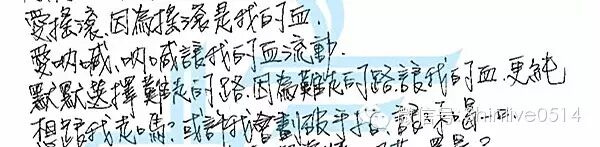 愛搖滾、因為搖滾是我的血.
愛吶喊、吶喊讓我的血流動.
默默選擇難走的路.因為難走的路讓我的血.更純
想跟我走嗎?或許我會劃破手指.讓
微信号: shinlive0514